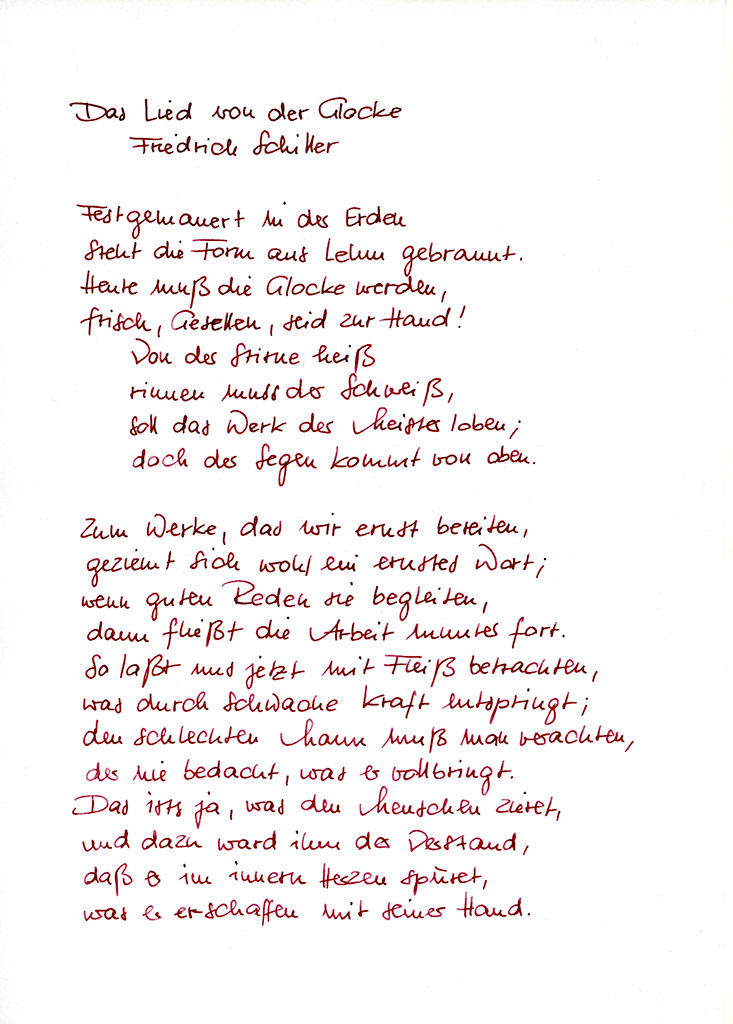 Das Lied von der Glocke
Friedrich Schiller
Festgemauert in der Erden
steht die Form aus Lehm gebrannt.
Heute muß die Glocke werden,
frisch, Gesellen, seid zur Hand!
Von der Stirne heiß
rinnen muss der Schweiß,
soll das Werk den Meister loben;
doch der Segen kommt von oben.
Zum Werke, das wir ernst bereiten,
geziemt sich wohl ein ernstes Wort;
wenn guten Reden sie begleiten,
dann fließt die Arbeit munter fort.
So laßt uns jetzt mit Fleiß betrachten,
was durch schwache Kraft entspringt;
den schlechten Mann muß man verachten,
der nie bedacht, was er vollbringt.
Das ists ja, was den Menschen zieret,
und dazu ward ihm der Verstand,
daß er im innern Herzen spüret,
was er erschaffen mit seiner Hand.